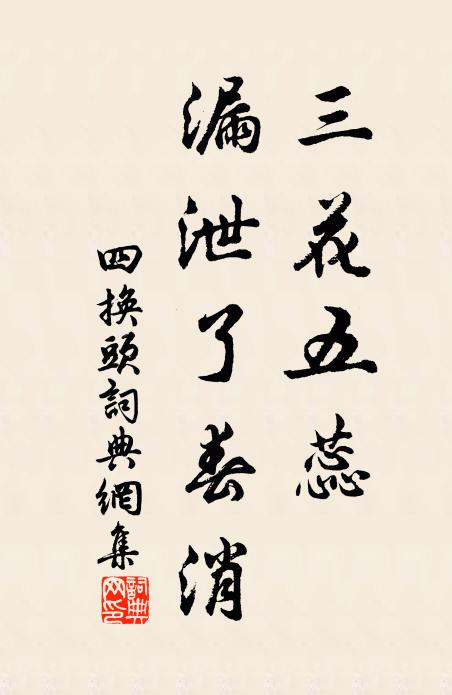 三花五蕊
漏泄了春消
四換頭詞典網集
詞典网印